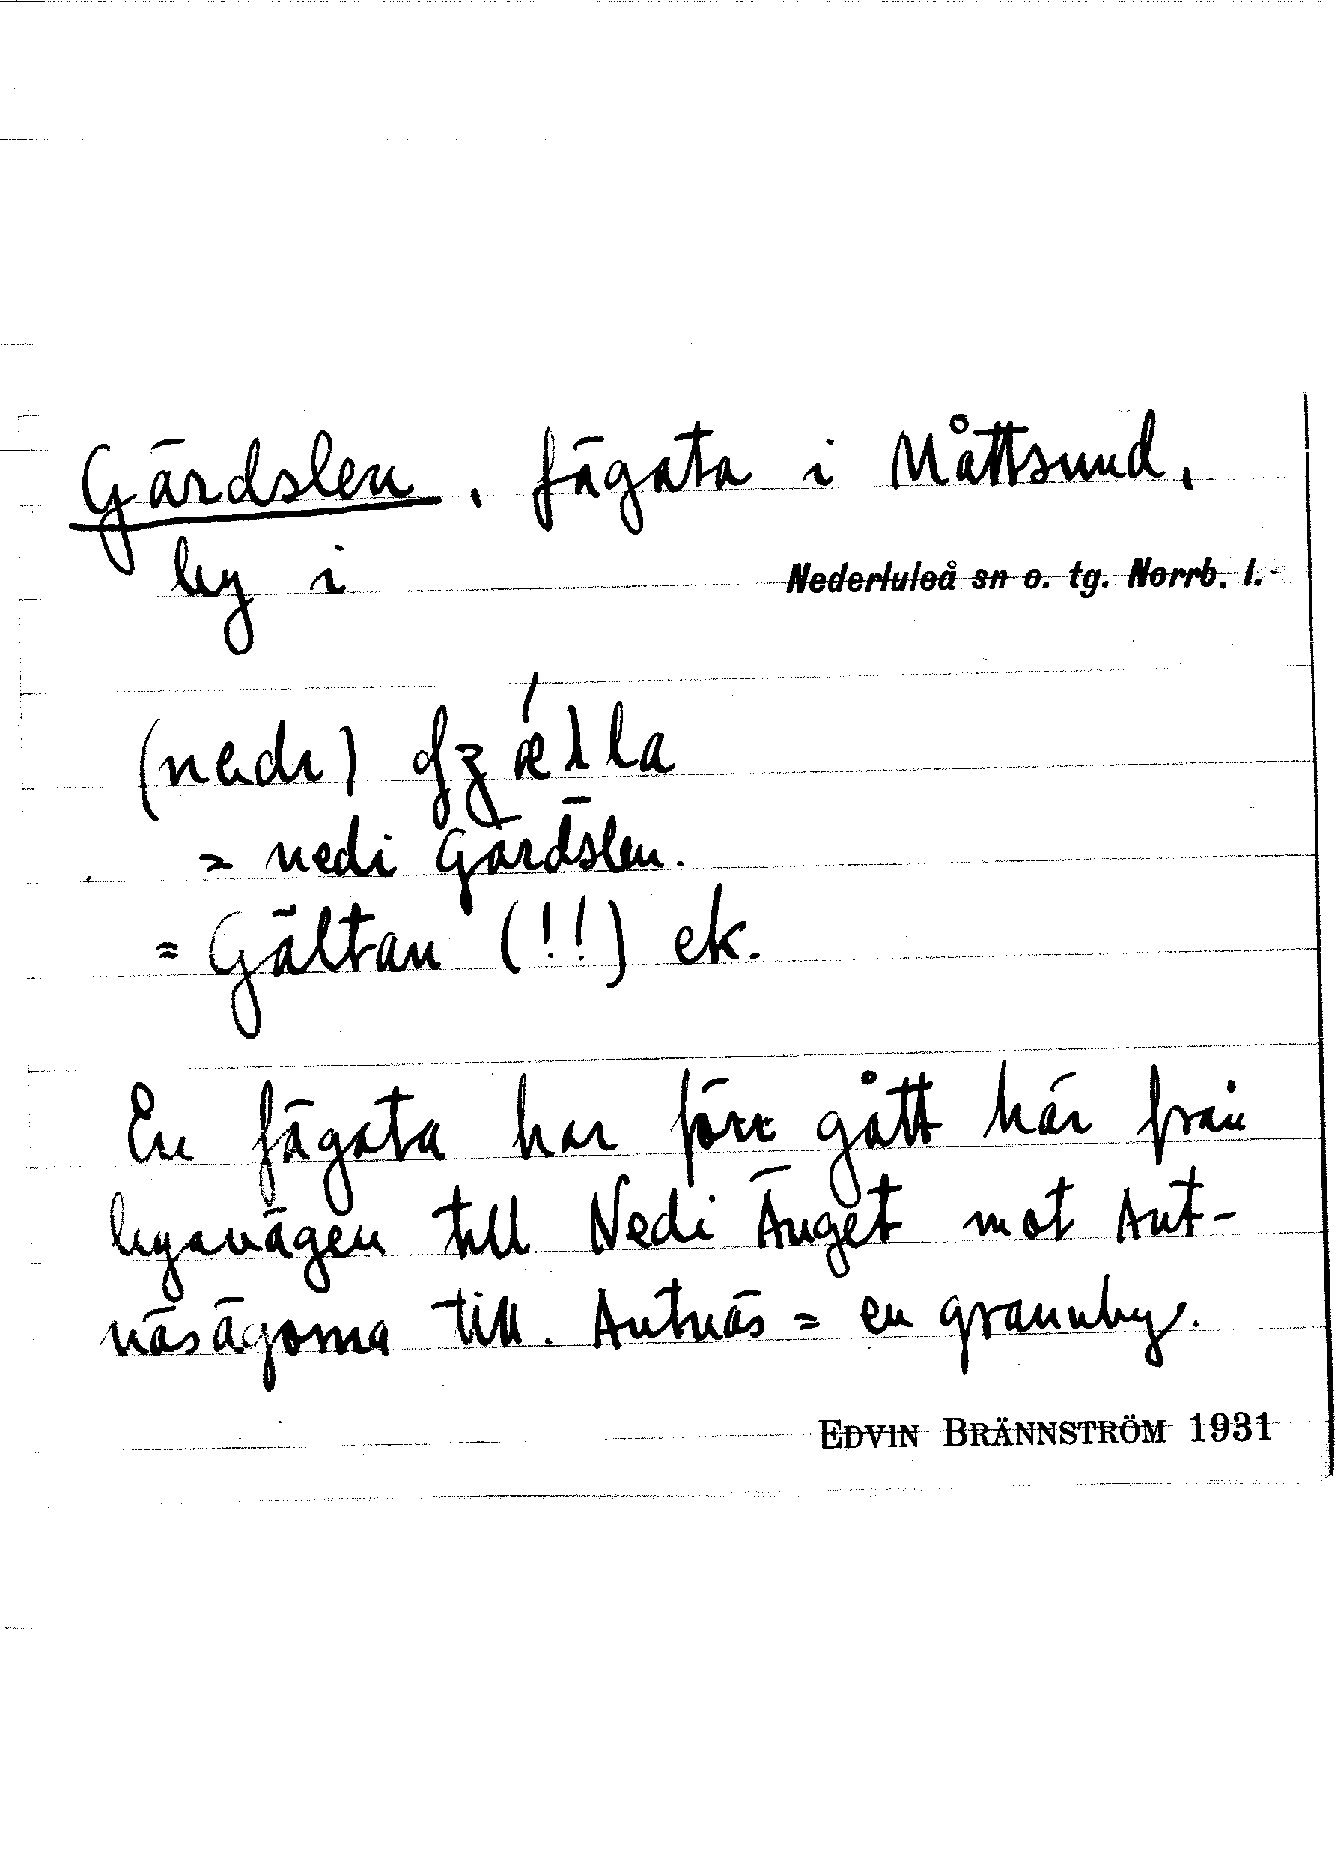 Gärdslen, fägata i Måttsund,
by i Nederluleå sn o. tg. Norrb. l.
(nedı)
= nedi Gärdslen.
= Gältan (!!) ek.
En fägata har förr gått här från
byavägen till Nedi Änget mot Ant-
näsägorna till. Antnäs = en grannby.
EDVIN BRÄNNSTRÖM 1931